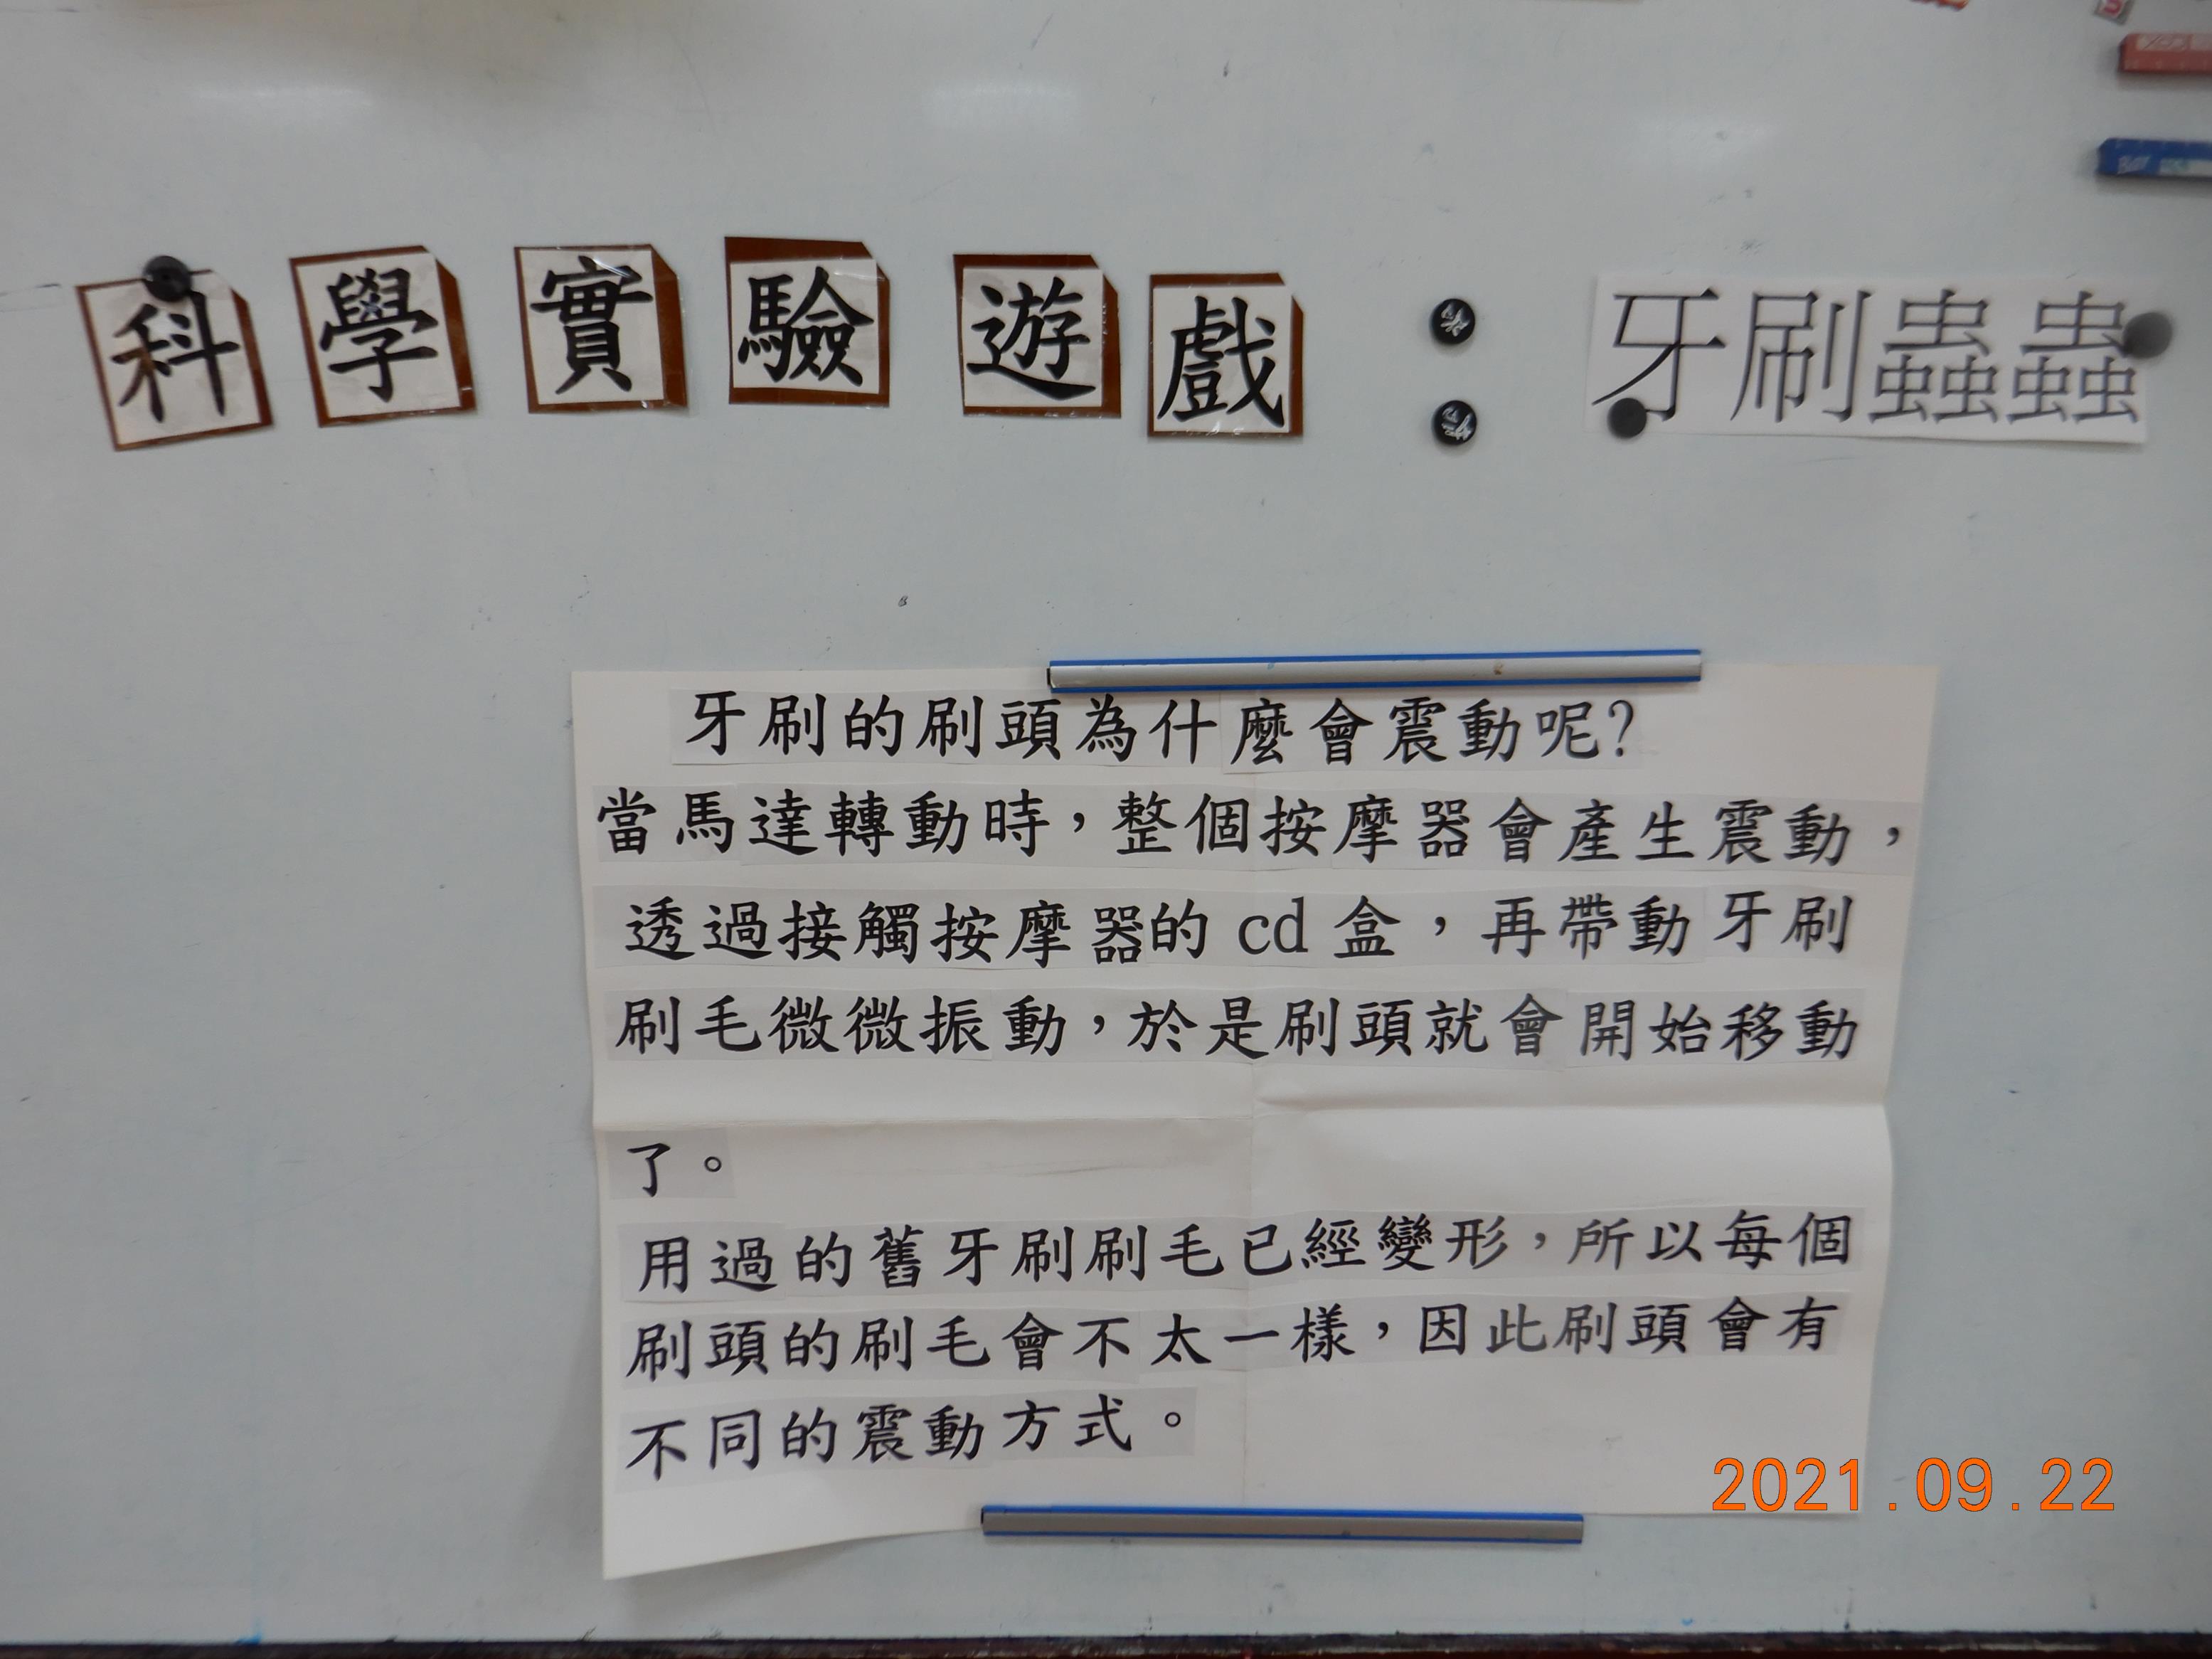 科學實驗遊戲：牙刷蟲蟲
牙刷的刷頭為什麼會震動呢?
當馬達轉動時，整個按摩器會產生震動，
透過接觸按摩器的 cd 盒，再帶動牙刷
刷毛微微振動，於是刷頭就會開始移動
了。
用過的舊牙刷刷毛已經變形，所以每個
刷頭的刷毛會不太一樣，因此刷頭會有
不同的震動方式。
2021.09.22